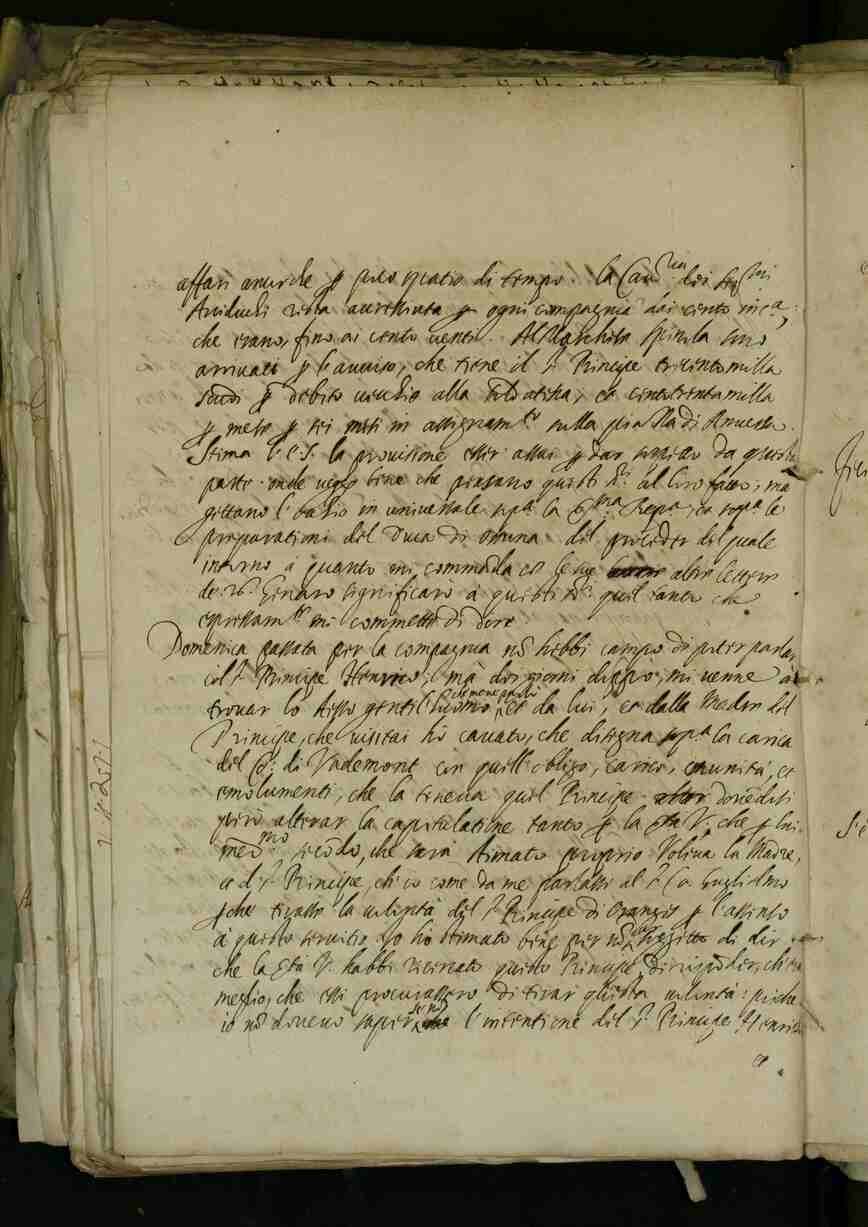 affari anco che p poco spatio di tempo. la Cavria dei sigri
Arciduchi resta accresciuta p ogni compagnia dai cento in ca,
che erano, fino ai cento venti. Al Marchese Spinola sono
arrivati p l'avviso, che tiene il sr Principe trecentomilla
scudi p debito vecchio alla soldatesca, et centotrentamilla
p mese p sei mesi in assignamti sulla piazza di Anversa.
Stima S. E. la provisione esser assai p dar sospetto da questa
parte. onde vego bene che pensano questi sri al loro fatto; ma
gettano l'occhio in universale sopa la sma Repca, et sopa le
preparationi del Duca di Ossuna. del proceder del quale
intorno a quanto mi commanda co le sue altre lettere
de 26 Genaro significarò a questi sri quel tanto che
espressamte mi commette di dover
Domenica passata per la compagnia nō hebbi campo di poter parlar
col sr Principe Henrico; mà doi giorni doppo, mi venne à
trovar lo stesso gentilhuomo, et da lui, et dalla Madre del
Principe, che visitai hò cavato, che disegna sopa la carica
del Co. di Vademont con quell'obligo, carico, immunità, et
emolumenti, che la teneva quel Principe dovendosi
però alterar la capitulatione tanto p la Stà V. che p lui
medmo secōdo, che sarà stimato proprio. Voleva la Madre,
et il sr Principe, ch'io come da me parlassi al sr Co. Guglielmo
pche tirasse la volontà del sr Principe di Oranges p l'assenso
à questo servitio. Io ho stimato bene per nō di dir
che la Stà V. habbi ricercato questo Principe, di risponder, ch'era
meglio, che essi procurassero di tirar questa volontà: poiche
io nō dovevo saper l'intentione del sr Principe Henrico
et